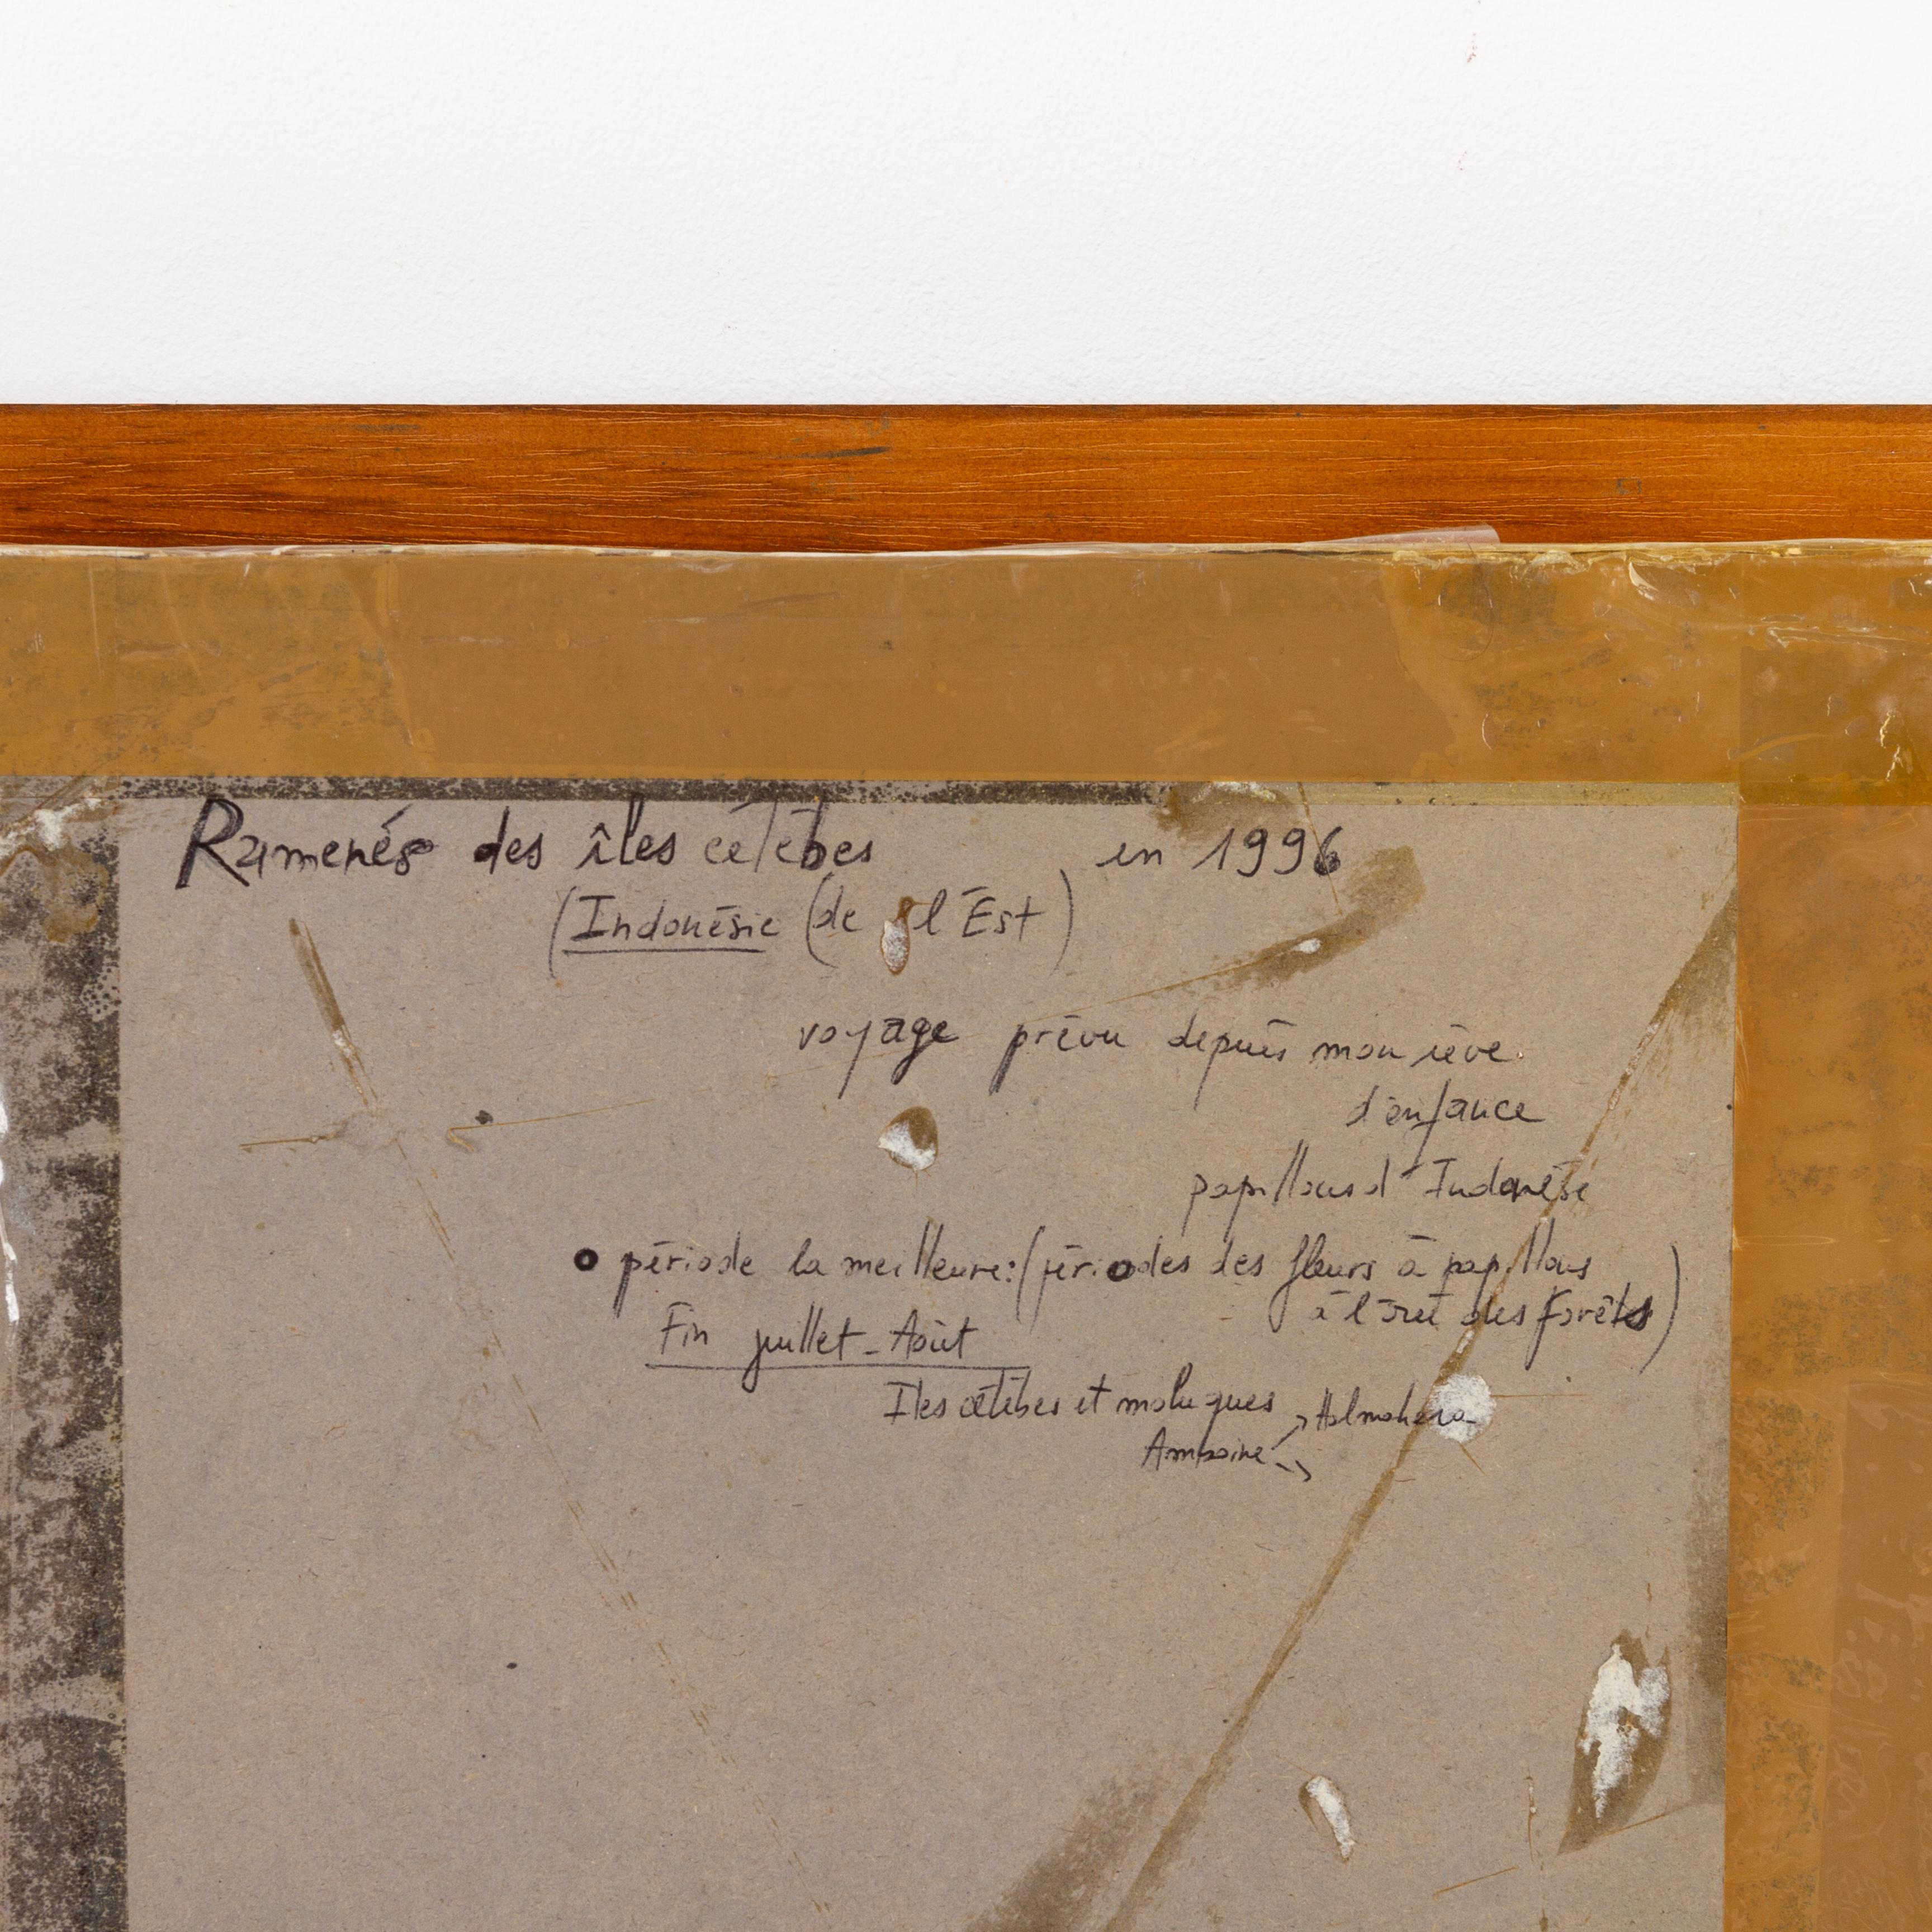 Ramenés des îles célèbes en 1996
(Indonésie (de l'Est)
voyage prévu depuis mon rêve
d'enfance
papillons d'Indonésie
o période la meilleure: (périodes des fleurs à papillons
à l'orée des forêts)
Fin juillet - Août
Iles célèbes et moluques
Amboine → Halmahera